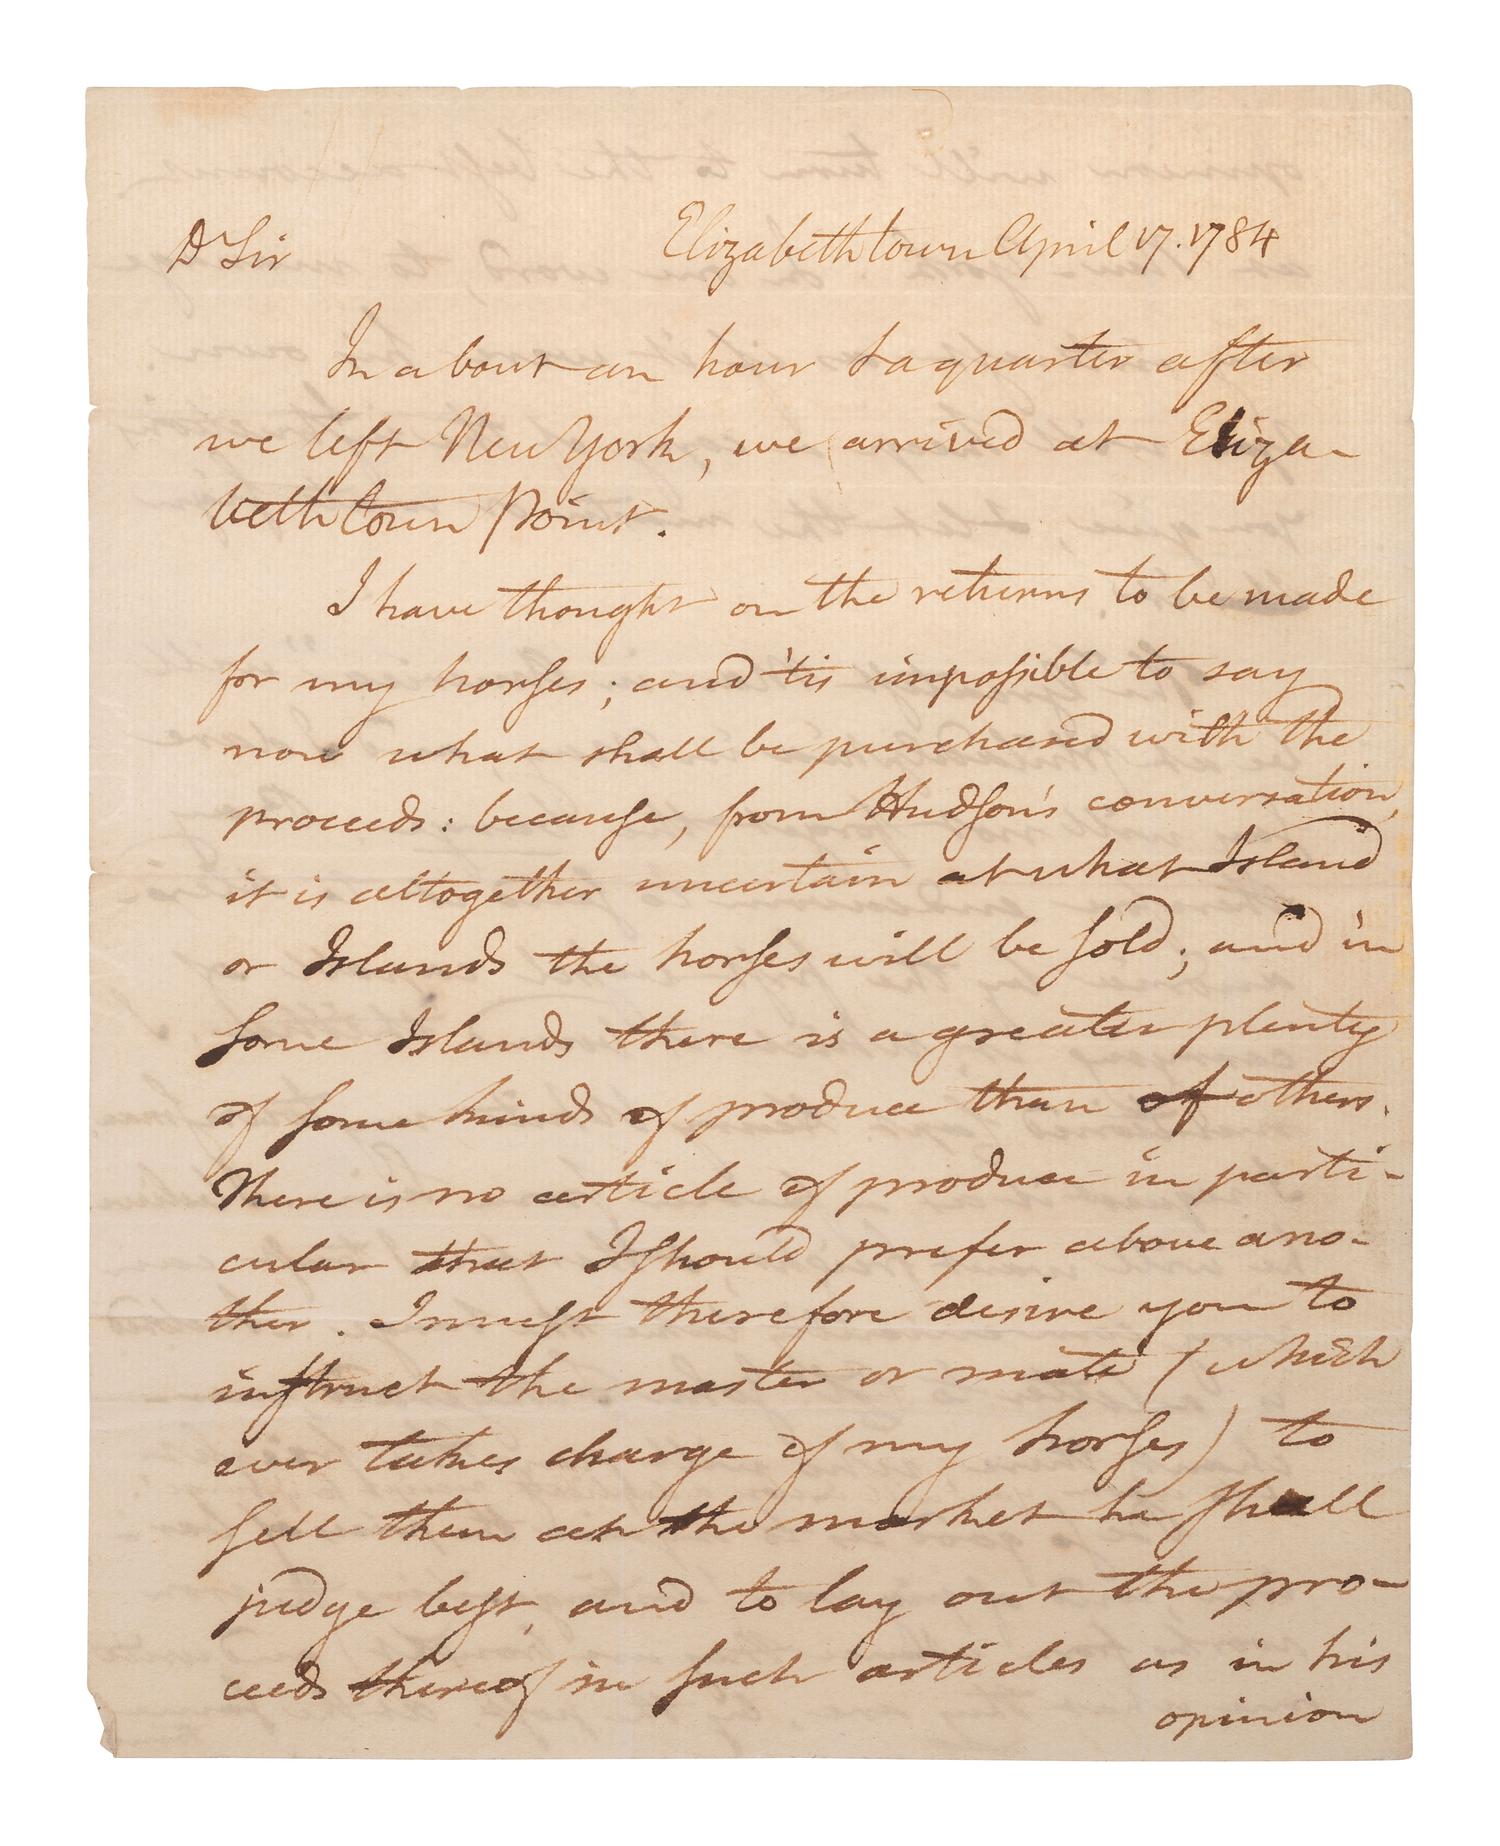 Dr Sir
Elizabethtown April 17. 1784
In about an hour & a quarter after
we left New York, we arrived at Eliza-
bethtown Point.
I have thought on the returns to be made
for my horses; and 'tis impossible to say
now what shall be purchased with the
proceeds: because, from Hudson's conversation,
it is altogether uncertain at what Island
or Islands the horses will be sold; and in
some Islands there is a greater plenty
of some kinds of produce than of others.
There is no article of produce in parti-
cular that I should prefer above ano-
ther. I must therefore desire you to
instruct the master or mate (which
ever takes charge of my horses) to
sell them at the market he shall
judge best, and to lay out the pro-
ceeds thereof in such articles as in his
opinion